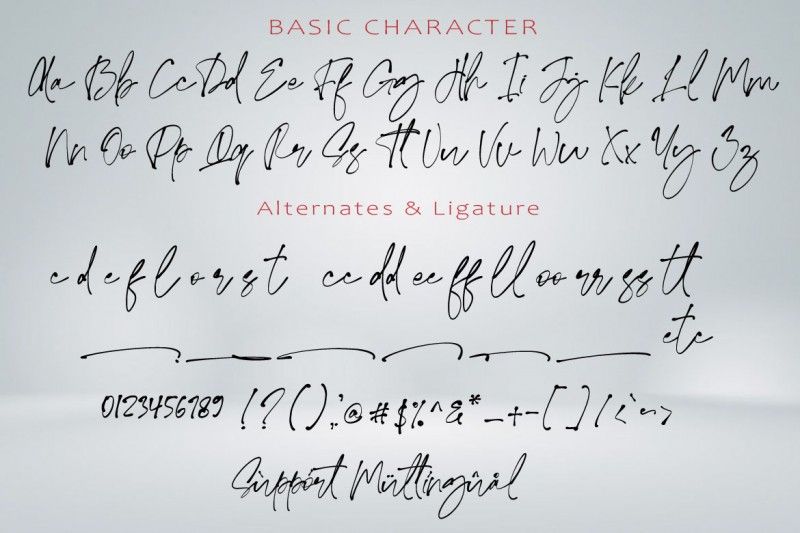 BASIC CHARACTER
Aa Bb Cc Dd Ee Ff Gg Hh Ii Jj Kk Ll Mm
Nn Oo Pp Qq Rr Ss Tt Uu Vv Ww Xx Yy Zz
Alternates & Ligature
c d e f l o r s t cc dd ee ff ll oo rr ss tt
etc
0123456789 !?().,:;'@#$%^&*_+-[]/<~>
Sùppórt Mültîngûål